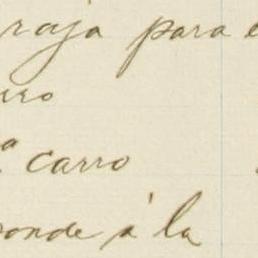 raja para
uro
a carro
onde á la